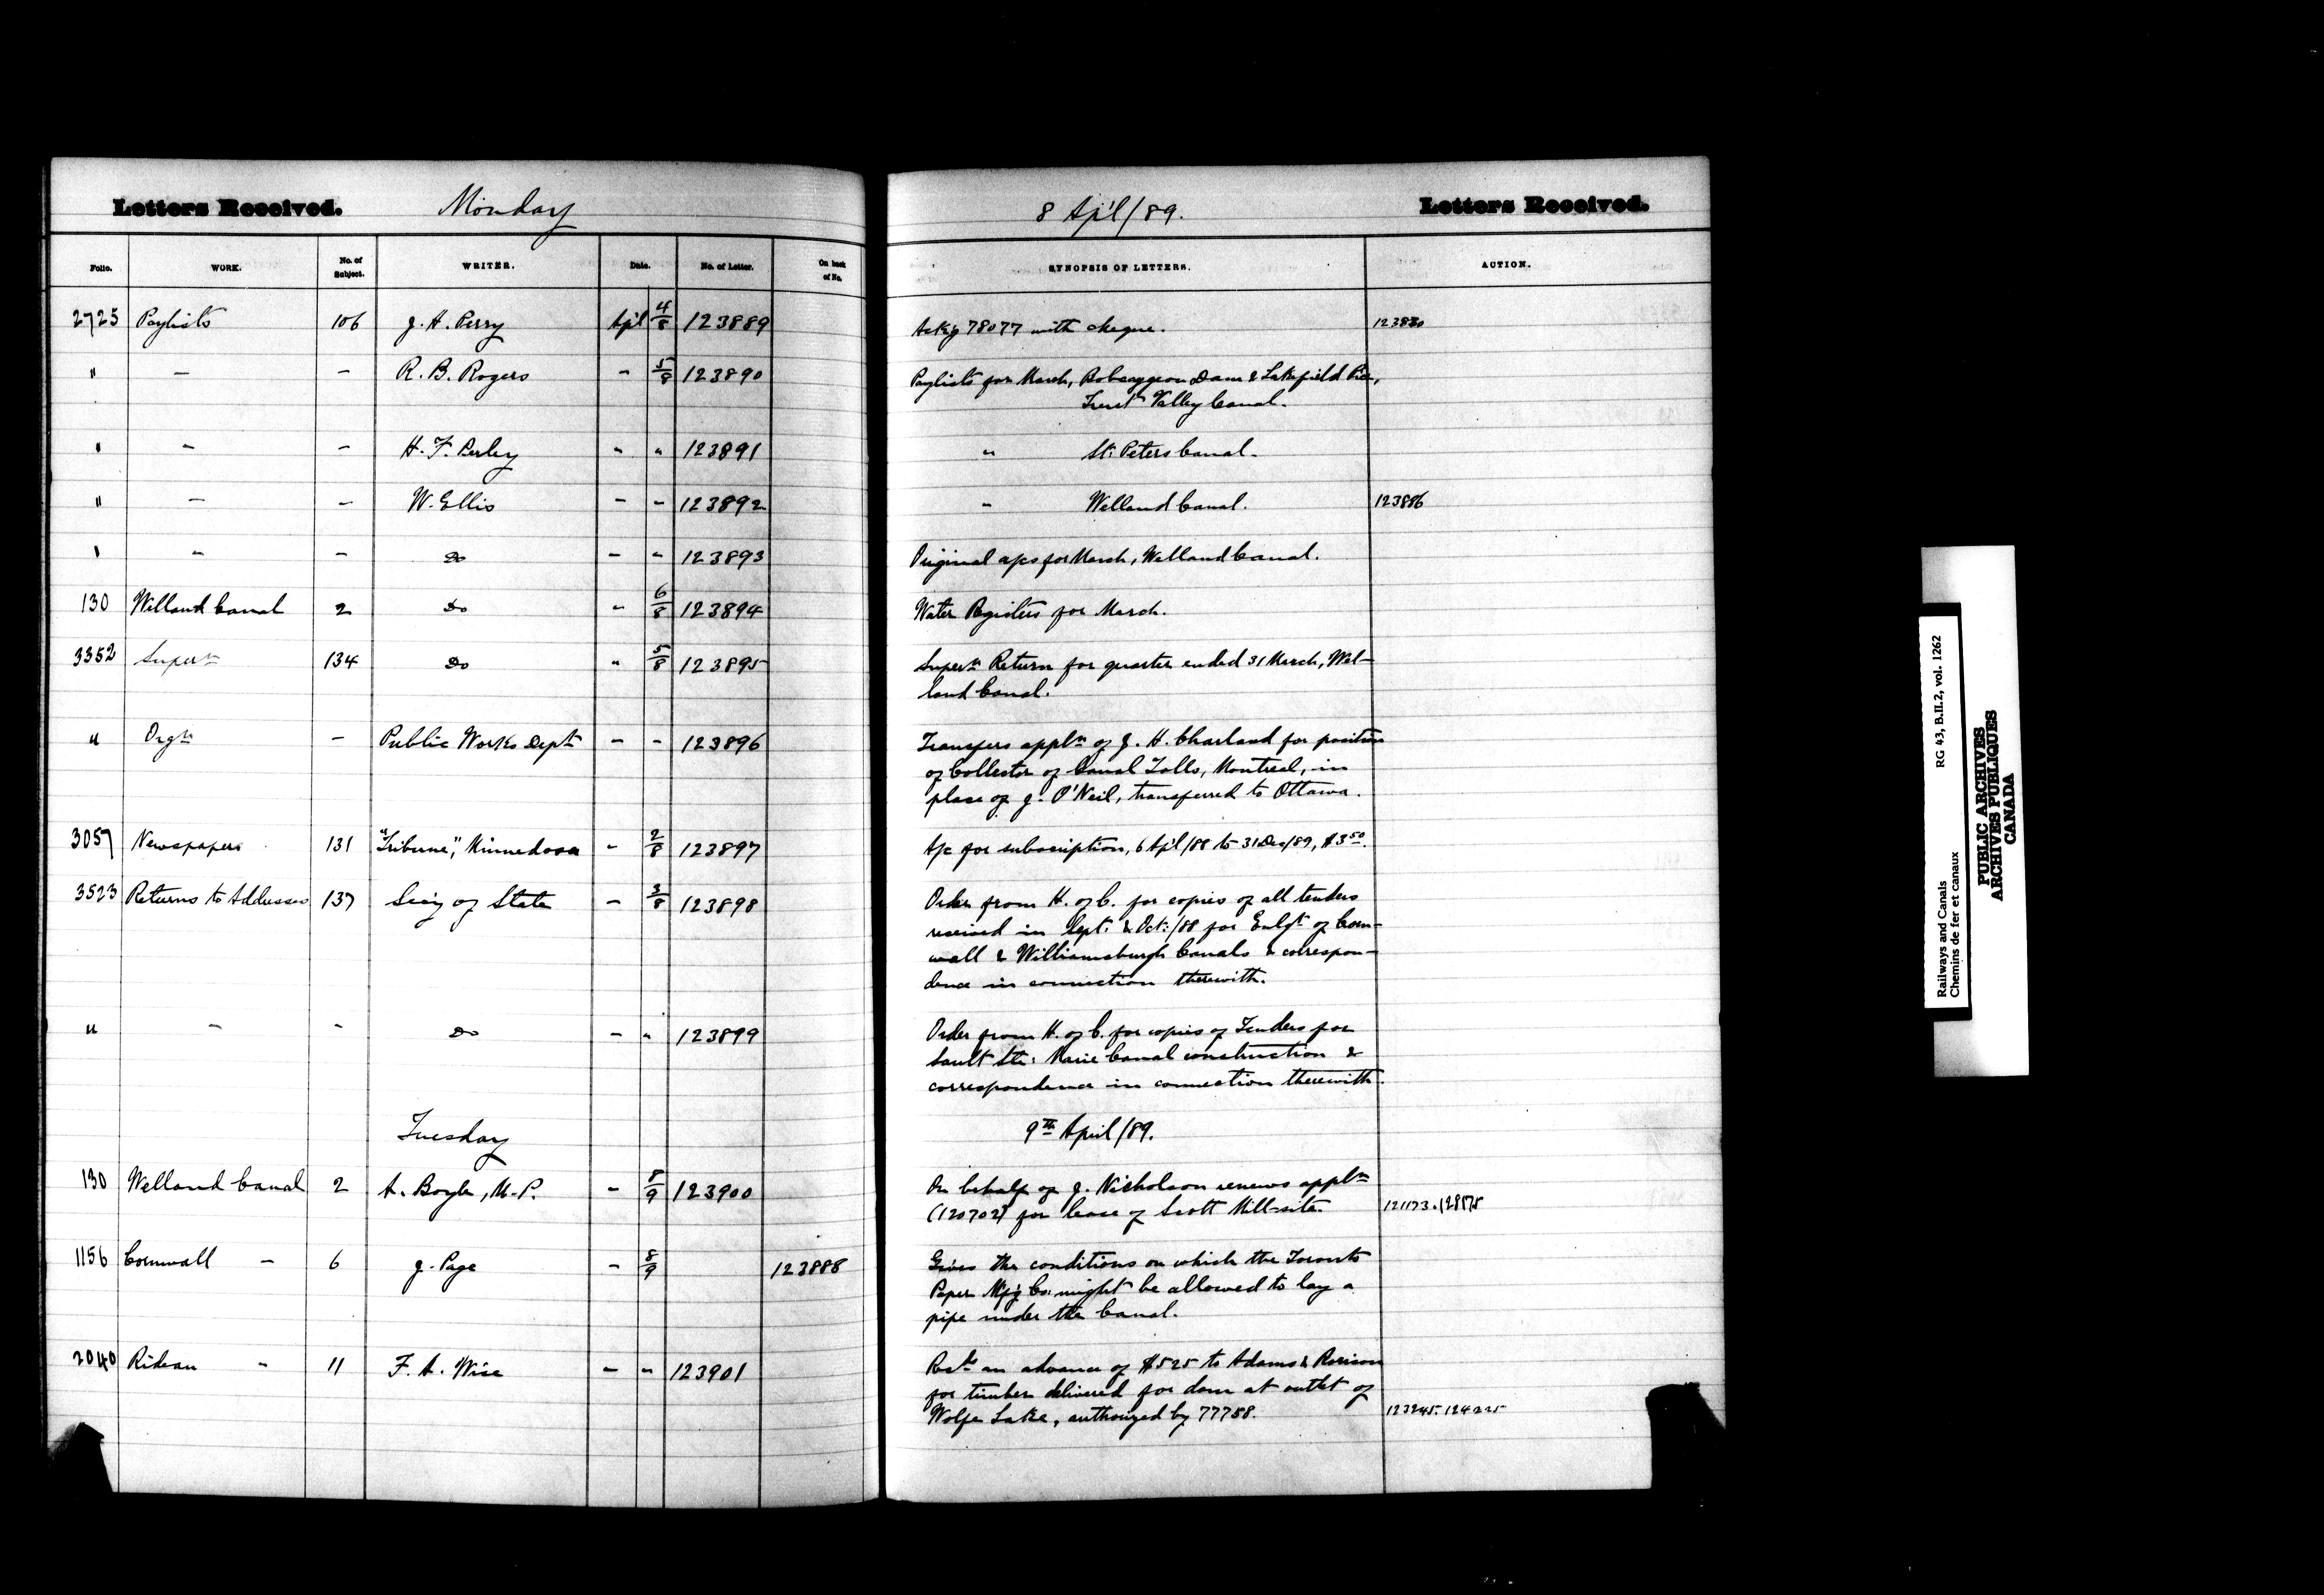 Letters Received. Monday 8 Apl/89. Letters Received.
Folio. WORK. No. of Subject. WRITER. Date. No. of Letter. On back of No. SYNOPSIS OF LETTERS. ACTION.
2725 Paylists 106 J. H. Perry Apl 4/8 123889 Ackg 78077 with cheque.
" — — R. B. Rogers - 5/8 123890 Paylists for March, Bobcaygeon Dam & Lakefield Pier,
Trent Valley Canal.
" — — H. F. Perley - " 123891 " St. Peters Canal.
" — — W. Ellis - - 123892 - Welland Canal. 123886
" - - Do - - 123893 Original a/cs for March, Welland Canal.
130 Welland Canal 2 Do - 6/8 123894 Water Registers for March.
3352 Supern 134 Do " 5/8 123895 Supern Return for quarter ended 31 March, Wel-
land Canal.
" Orgn - Public Works Dept - - 123896 Transfers appln of J. H. Charland for position
of Collector of Canal Tolls, Montreal, in
place of J. O'Neil, transferred to Ottawa.
3057 Newspapers 131 "Tribune", Minnedosa - 2/8 123897 A/c for subscription, 6 Apl/88 to 31 Dec/89, $3 50.
3523 Returns to Addresses 137 Secy of State - 3/8 123898 Order from H. of C. for copies of all tenders
received in Sept. & Oct:/88 for Enlgt of Corn-
wall & Williamsburgh Canals & correspon-
dence in connection therewith.
" - - Do - " 123899 Order from H. of C. for copies of Tenders for
Sault Ste: Marie Canal construction &
correspondence in connection therewith.
Tuesday 9th April/89.
130 Welland Canal 2 A. Boyle, M.P. - 8/9 123900 On behalf of J. Nicholson renews appln
(120702) for lease of Scott Mill-site.
1156 Cornwall - 6 J. Page - 8/9 123888 Gives the conditions on which the Toronto
Paper Mfg Co: might be allowed to lay a
pipe under the Canal.
2040 Rideau - 11 F. A. Wise - " 123901 an advance of $525 to Adams &
for timber delivered for dam at outlet of
Wolfe Lake, authorized by 77758.
Railways and Canals RG 43, B.II.2, vol. 1262
Chemins de fer et canaux
PUBLIC ARCHIVES
ARCHIVES PUBLIQUES
CANADA